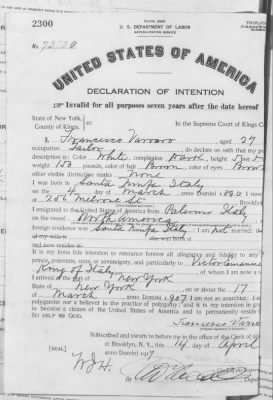 2300
Form 2203
U. S. DEPARTMENT OF LABOR
NATURALIZATION SERVICE
No.
UNITED STATES OF AMERICA
DECLARATION OF INTENTION
Invalid for all purposes seven years after the date hereof
State of New York,
County of Kings,
In the Supreme Court of Kings
I, Francesco Varvaro aged 27
occupation Tailor, do declare on oath that my
description is: Color White, complexion Dark, height 5 feet
150 pounds, color of hair Brown, color of eyes Brown
other visible distinctive marks None
I was born in Santa Ninfa Italy
on the day of March, anno Domini; I now reside
at 206 Melrose St Brooklyn
I emigrated to the United States of America from Palermo Italy
on the vessel North America; my last
foreign residence was Santa Ninfa Italy. I am not married; the
she was born at
and now resides at
It is my bona fide intention to renounce forever all allegiance and fidelity to any
prince, potentate, state, or sovereignty, and particularly to Victor Emanuel
King of Italy, of whom I am now a
I arrived at the port of New York
State of New York on or about the 17
of March, anno Domini 1907; I am not an anarchist; I am
polygamist nor a believer in the practice of polygamy; and it is my intention
to become a citizen of the United States of America and to permanently reside
SO HELP ME GOD.
Francesco Varva
Subscribed and sworn to before me in the office of the Clerk of
at Brooklyn, N. Y., this 14 day of April
anno Domini 191
[SEAL]